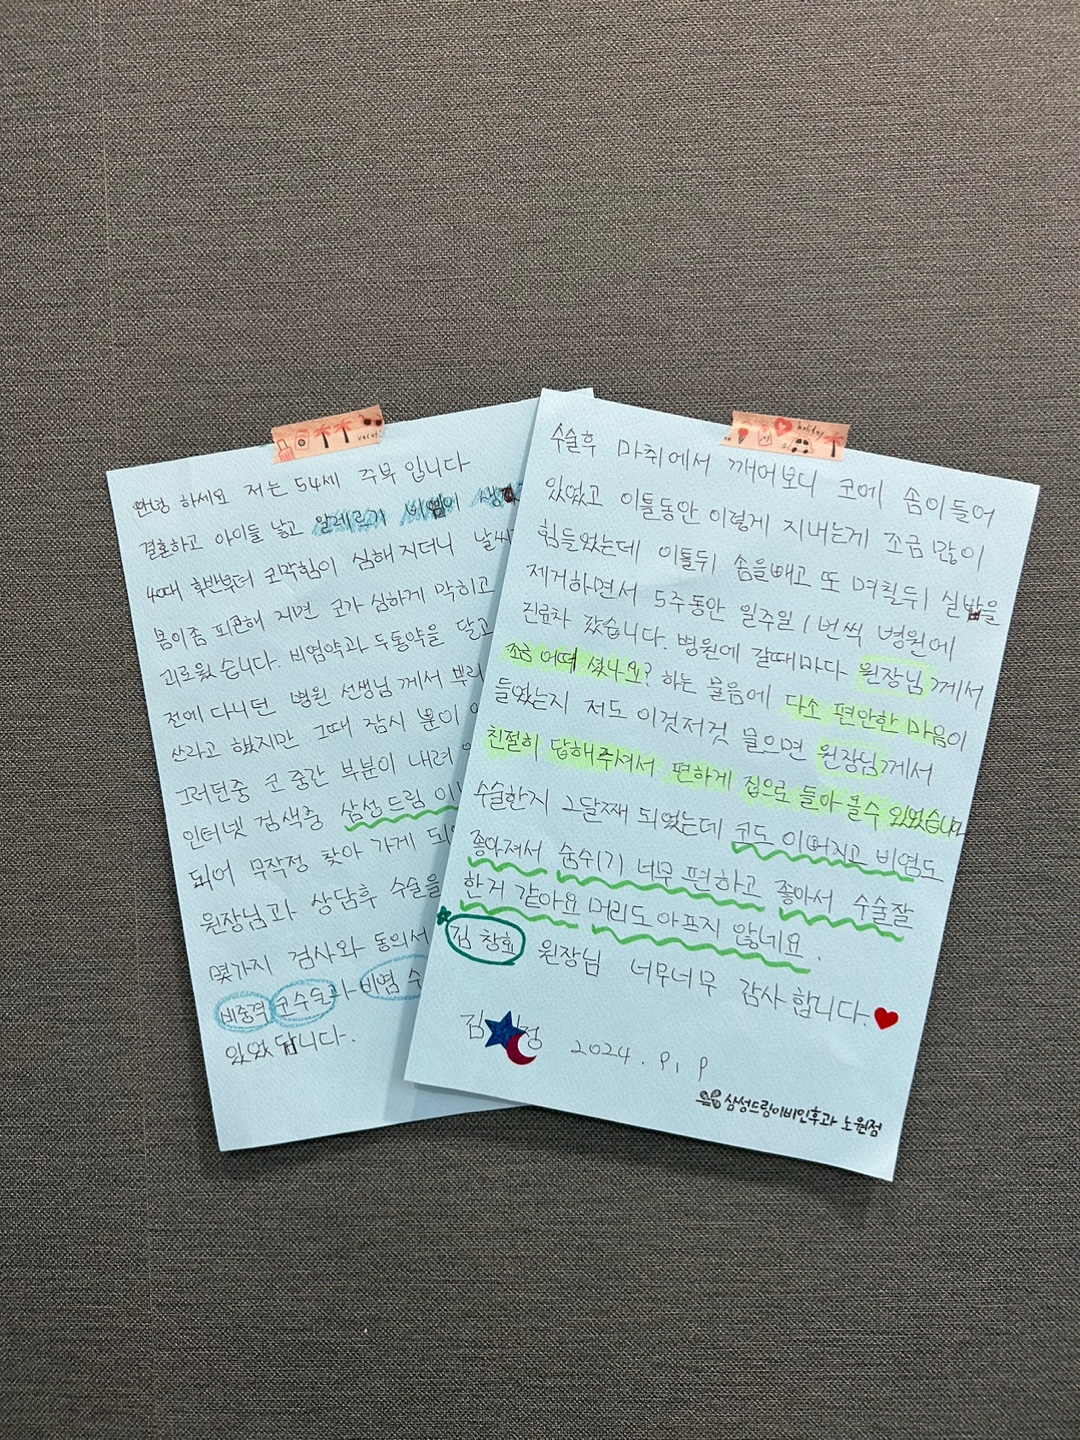 안녕 하세요 저는 54세 주부 입니다
결혼하고 아이들 낳고 알레르기 비염이 생
40대 후반부터 코막힘이 심해 지더니 날씨
몸이좀 피곤해 지면 코가 심하게 막히고
괴로웠 습니다. 비염약과 두통약을 달고
전에 다니던 병원 선생님 께서 뿌리
쓰라고 했지만 그때 잠시 뿐이
그러던중 코 중간 부분이 내려
인터넷 검색중 삼성 드림 이
되어 무작정 찾아 가게 되
원장님과 상담후 수술을
몇가지 검사와 동의서
비중격 코수술과 비염 수
있었 답니다.
수술후 마취에서 깨어보니 코에 솜이들어
있었고 이틀동안 이렇게 지내는게 조금 많이
힘들었는데 이틀뒤 솜을빼고 또 며칠뒤 실밥을
제거하면서 5주동안 일주일 1번씩 병원에
진료차 갔습니다. 병원에 갈때마다 원장님께서
조금 어떠 셨나요? 하는 물음에 다소 편안한 마음이
들었는지 저도 이것저것 물으면 원장님께서
친절히 답해주셔서 편하게 집으로 돌아 올수 있었습니다
수술한지 2달째 되었는데 코도 이뻐지고 비염도
좋아져서 숨쉬기 너무 편하고 좋아서 수술잘
한거 같아요 머리도 아프지 않네요.
김창효 원장님 너무너무 감사 합니다.
김 정 2024. 9. 9
삼성드림이비인후과 노원점